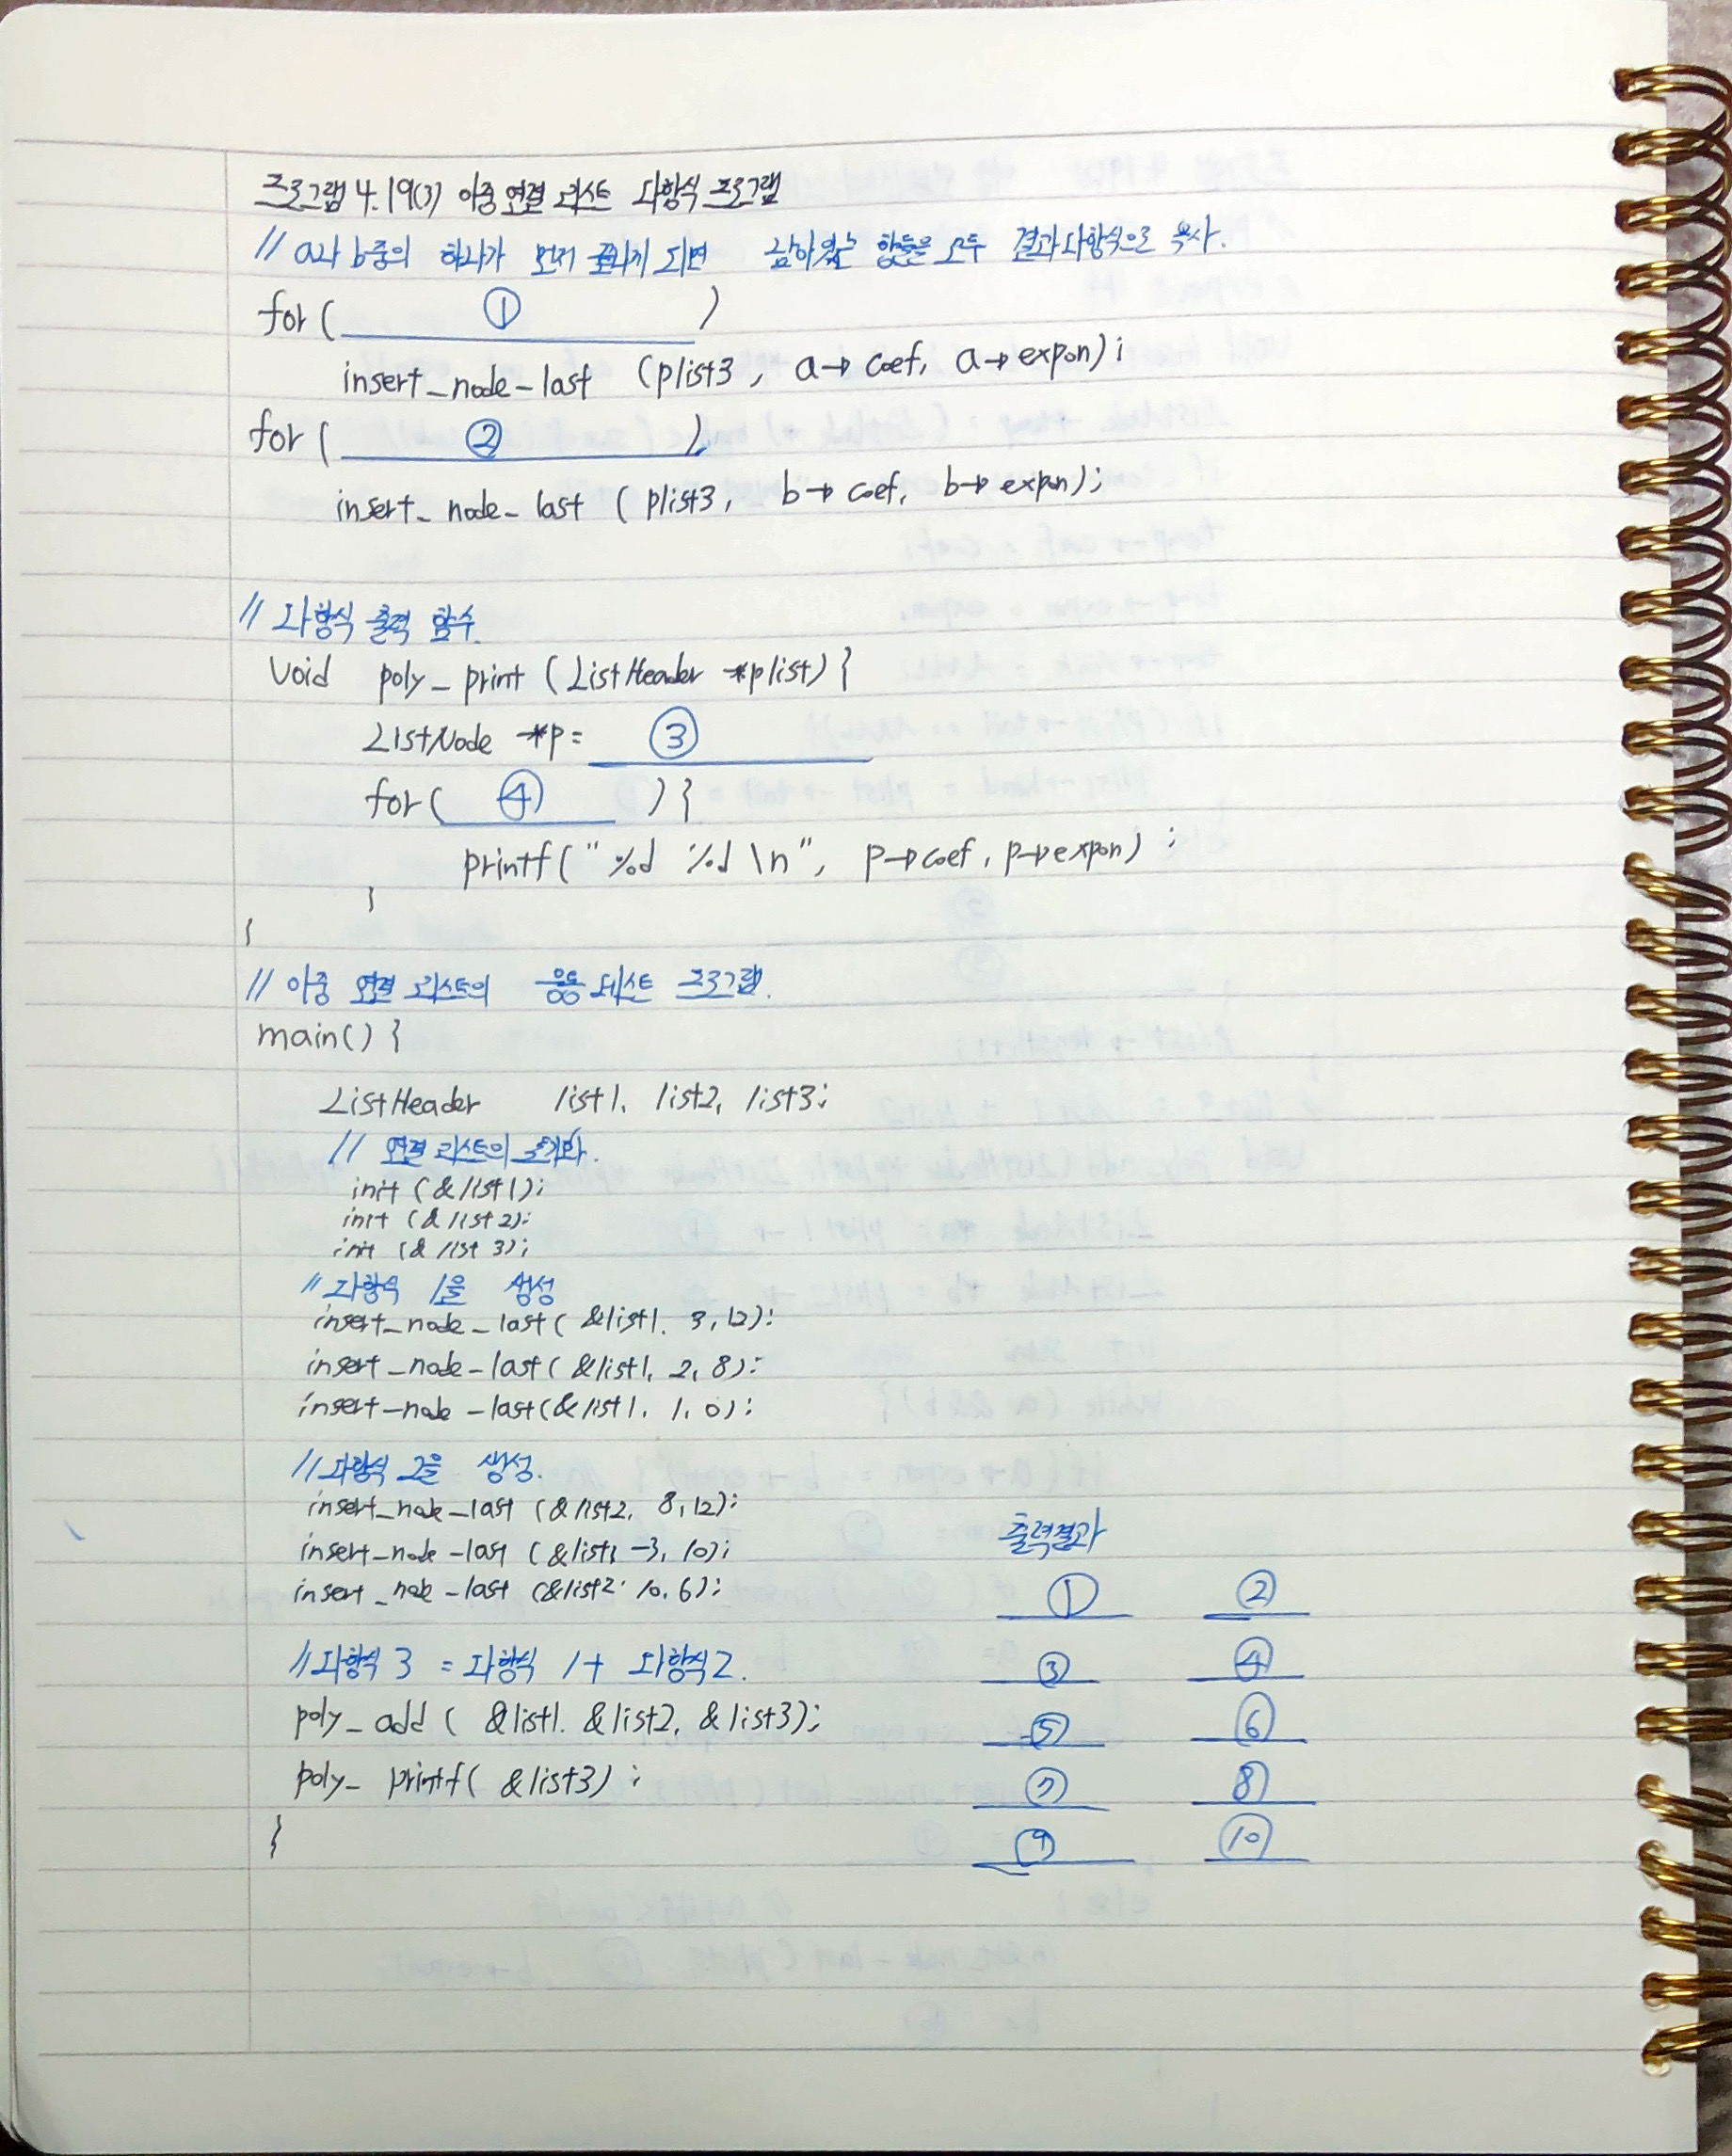 프로그램 4.19(3) 이중 연결 리스트 다항식 프로그램
// a나 b중의 하나가 먼저 끝나게 되면 남아있는 항들을 모두 결과 다항식으로 복사.
for ( ① )
insert_node_last (plist3, a→coef, a→expon);
for ( ② )
insert_node_last (plist3, b→coef, b→expon);
// 다항식 출력 함수.
void poly_print (ListHeader *plist) {
ListNode *p = ③
for ( ④ ) {
printf("%d %d \n", p→coef, p→expon) ;
}
}
// 이중 연결 리스트의 응용 테스트 프로그램.
main() {
ListHeader list1, list2, list3;
// 연결 리스트의 초기화.
init (&list1);
init (&list2);
init (&list3);
// 다항식 1을 생성
insert_node_last( &list1, 3, 12);
insert_node_last( &list1, 2, 8);
insert_node_last(&list1, 1, 0);
// 다항식 2을 생성.
insert_node_last (&list2, 8, 12);
insert_node_last (&list -3, 10);
insert_node_last (&list2, 10, 6);
출력결과
① ②
// 다항식 3 = 다항식 1 + 다항식2.
③ ④
poly_add ( &list1, &list2, &list3);
⑤ ⑥
poly_printf( &list3) ;
⑦ ⑧
}
⑨ ⑩